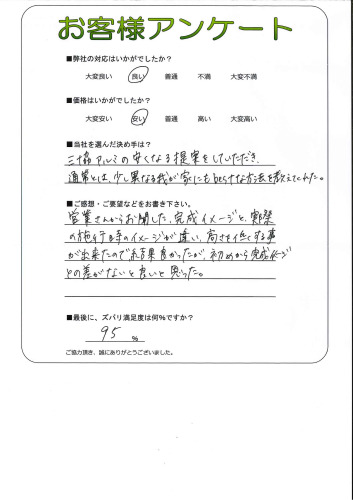 お客様アンケート
■弊社の対応はいかがでしたか?
大変良い 良い 普通 不満 大変不満
■価格はいかがでしたか?
大変安い 安い 普通 高い 大変高い
■当社を選んだ決め手は?
三協アルミの安くなる提案をしていただき、
通常とは、少し異なる我が家にもbestな方法を教えてくれた。
■ご感想・ご要望などをお書き下さい。
営業さんからお聞した、完成イメージと、実際
の施行時のイメージが違い、高さを低くする事
が出来たので結果良かったが、初めから完成イメージ
との差がないと良いと思った。
■最後に、ズバリ満足度は何%ですか?
95 %
ご協力頂き、誠にありがとうございました。